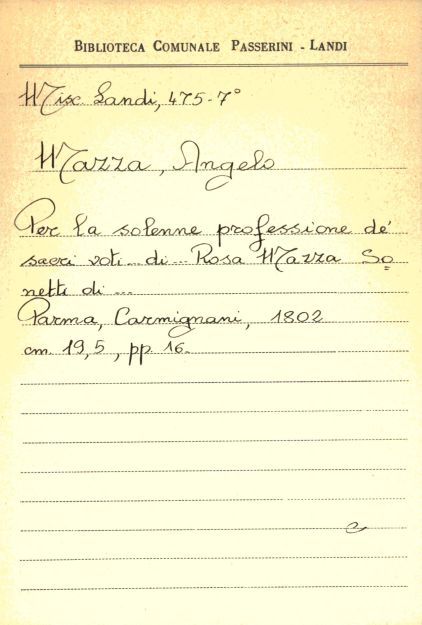 BIBLIOTECA COMUNALE PASSERINI - LANDI
Misc. Landi, 475-7°
Mazza, Angelo
Per la solenne professione de'
sacri voti ... di ... Rosa Mazza So
netti di ...
Parma, Carmignani, 1802
cm. 19,5, pp. 16.